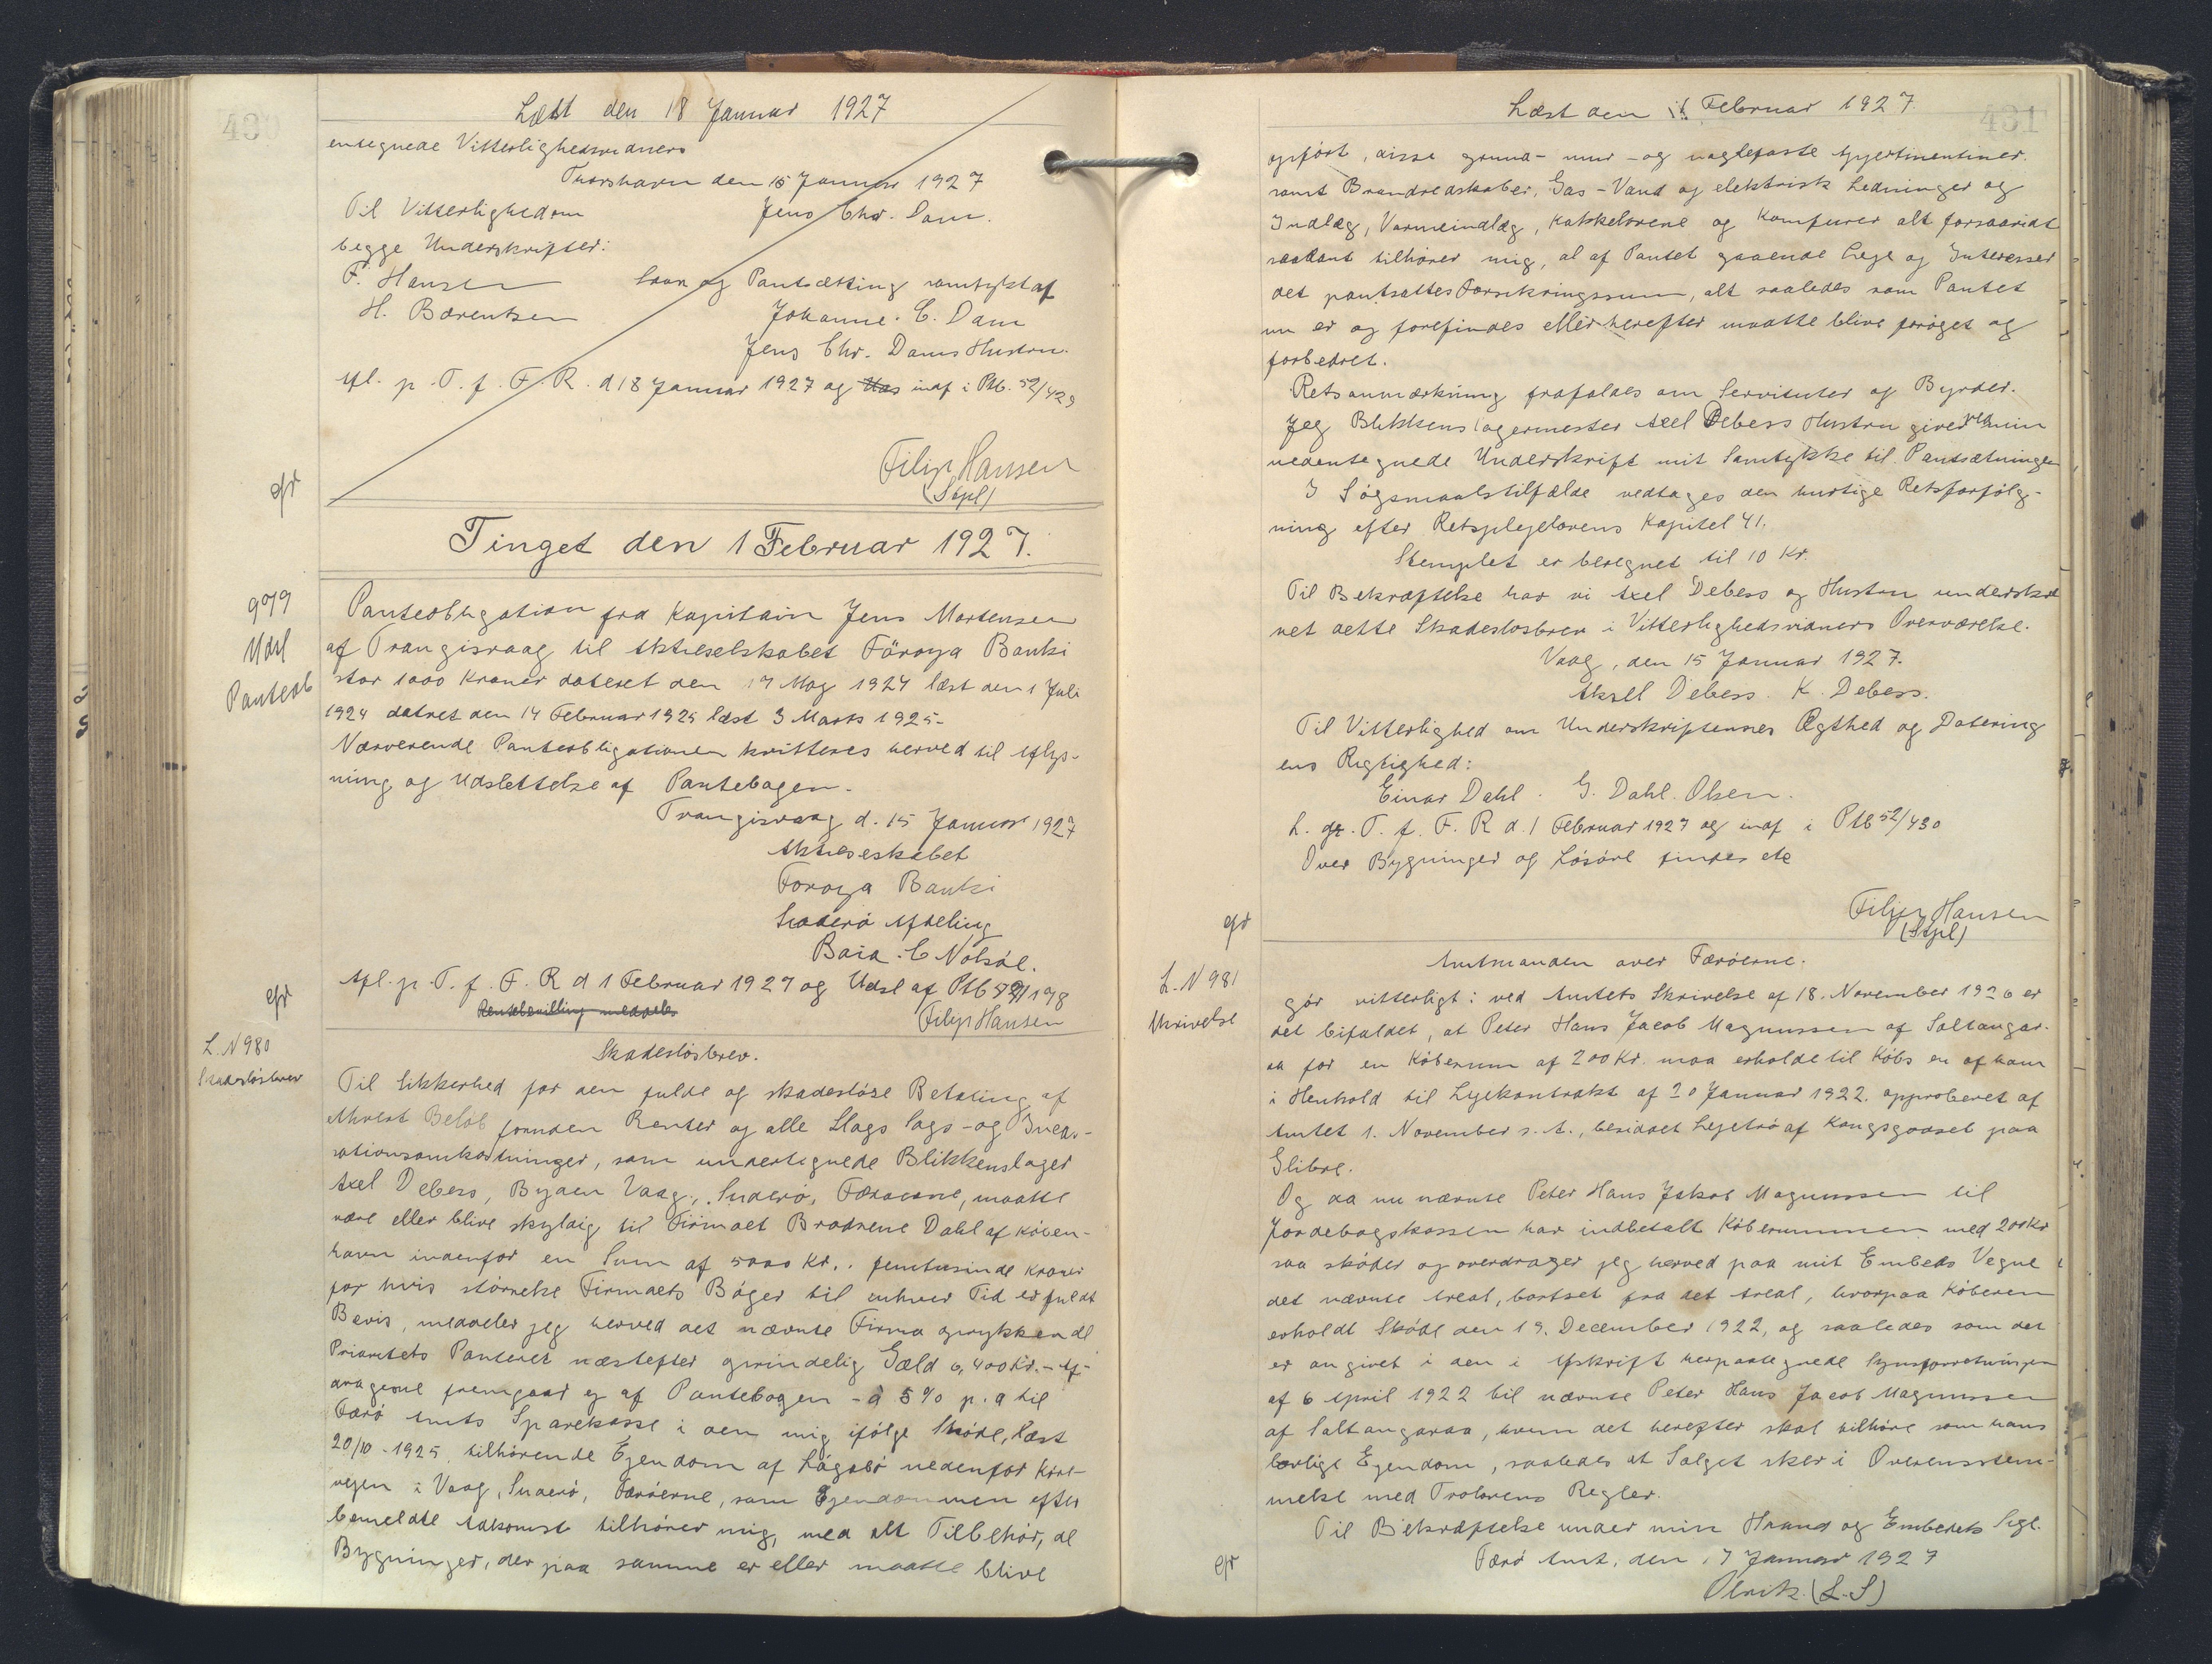 430
Læst den 18 Januar 1927
entegnede Vitterlighedsvidners
Thorshavn den 15 Januar 1927
Til Vitterlighed om
Jens Chr. Dam.
begge Underskrifter:
F. Hansen
Laan og Pantsætting samtykt af
H. Bærentsen
Johanne. C. Dam
Jens Chr. Dams Hustru.
Afl. p. T. f. F. R. d 18 Januar 1927 og inf i Ptb. 52/429
Filip Hansen
(Stpl)
gr
Tinget den 1 Februar 1927.
979
Udsl
Panteob
Panteobligation fra Kapitain Jens Mortensen
af Trangisvaag til Aktieselskabet Föroya Banki
stor 1000 Kroner dateret den 17 Maj 1924 læst den 1 Juli
1924 datret den 14 Februar 1925 læst 3 Marts 1925-
Nærverende Panteobligationen kvitteres herved til Aflys-
ning og Udslettelse af Pantebogen.
Trangisvaag d. 15 Januar 1927
Aktieseskabet
Foroya Banki
Suderö Afdeling
Baia. C Nolsöe.
Afl. p. T. f. F. R d 1 Februar 1927 og Udsl af Ptb
Filip Hansen
gr
L. N 980
Skadeslösbrev
Skadeslösbrev.
Til Sikkerhed for den fulde og skadeslöse Betaling af
ethvert Belöb foruden Renter og alle Slags Sags- og Incas-
sationsomkostninger, som undertegnede Blikkenslager
Axel Debess, Byden Vaag, Suderö, Færoerne, maatte
være eller blive skyldig til Firmaet Brødrene Dahl af Köben-
havn indenfor en Sum af 5000 Kr.. femtusinde Kroner
for hvis störrelse Firmaets Böger til enhver Tid er fuldt
Bevis, meddeler jeg herved det nævnte Firma oprykkende
Prioritets Panteret næstefter oprindelig Gæld 6,400 Kr.- Af-
dragene fremgaar ej af Pantebogen - à 5% p. a til
Færö Amts Sparekasse i den mig ifölge Sköde, læst
20/10 - 1925, tilhörende Ejendom af Lágabö nedenfor Köre-
vejen i Vaag, Suderö, Færöerne, som Ejendommen efter
bemeldte Adkomst tilhörer mig, med alt Tilbehör, de
Bygninger, der paa samme er eller maatte blive
431
Læst den Februar 1927
opfört, disse grund- mur- og naglefaste Appertinentiner.
samt Brandredskaber, Gas-Vand og elektrisk Ledninger og
Indlæg, Varmeindlæg, Kakkelovene og Komfurer alt forsaavidt
saadant tilhörer mig, al af Pantet gaaende Leje og Interesser
det pantsattes Forsikringssum, alt saaledes som Pantet
nu er og forefindes eller herefter maatte blive foröget og
forbedret.
Retsanmærkning frafaldes om Servituter og Byrder.
Jeg Blikkenslagermester Axel Debess Hustru giver ved min
nedentegnede Underskrift mit Samtykke til Pantsætningen
I Sögsmaalstilfælde vedtages den hurtige Retsforfölg-
ning efter Retsplejelovens Kapitel 41.
Stemplet er beregnet til 10 Kr.
Til Bekræftelse har vi Axel Debess og Hustru underskre
vet dette Skadeslosbrev i Vitterlighedsvidners Overværelse.
Vaag, den 15 Januar 1927.
Aksel Debess. K. Debess.
Til Vitterlighed om Underskriftennes Ægthed og Datering
ens Rigtighed:
Einar Dahl. G. Dahl. Olsen.
L. p. T. f. F. R d. 1 Februar 1927 og inf i Ptb 52/430
Over Bygninger og Lösöre findes ete
Filip Hansen
(Stpl)
gr
L. N 981
Skrivelse
Amtmanden over Færöerne.
gör vitterligt: ved Amtets Skrivelse af 18. November 1926 er
det bifaldet, at Peter Hans Jacob Magnussen af Saltangar-
aa for en Köbesum af 200 Kr. maa erholde til Köbs en af ham
i Henhold til Lejekontrakt af 20 Januar 1922. approberet af
Amtet 1. November s. A., besiddet Lejetrö af Kongsgodset paa
Glibre.
Og da nu nævnte Peter Hans Jakob Magnussen til
Jordebogskassen har indbetalt Köbesummen med 200 Kr
saa sköder og overdrager jeg herved paa mit Embeds Vegne
det nævnte Areal, bortset fra det Areal, hvorpaa Köberen
erholdt Sköde den 19. December 1922, og saaledes som det
er angivet i den i Afskrift herpaategnede Synsforretningen
af 6 April 1922 til nævnte Peter Hans Jacob Magnussen
af Saltangaraa, hvem det herefter skal tilhöre som hans
lovlige Ejendom, saaledes at Salget sker i Overensstem-
melse med Trolovens Regler.
Til Bekræftelse under min Haand og Embedets Segl.
Færö Amt, den 17 Januar 1927
Olrik. (L.S)
gr